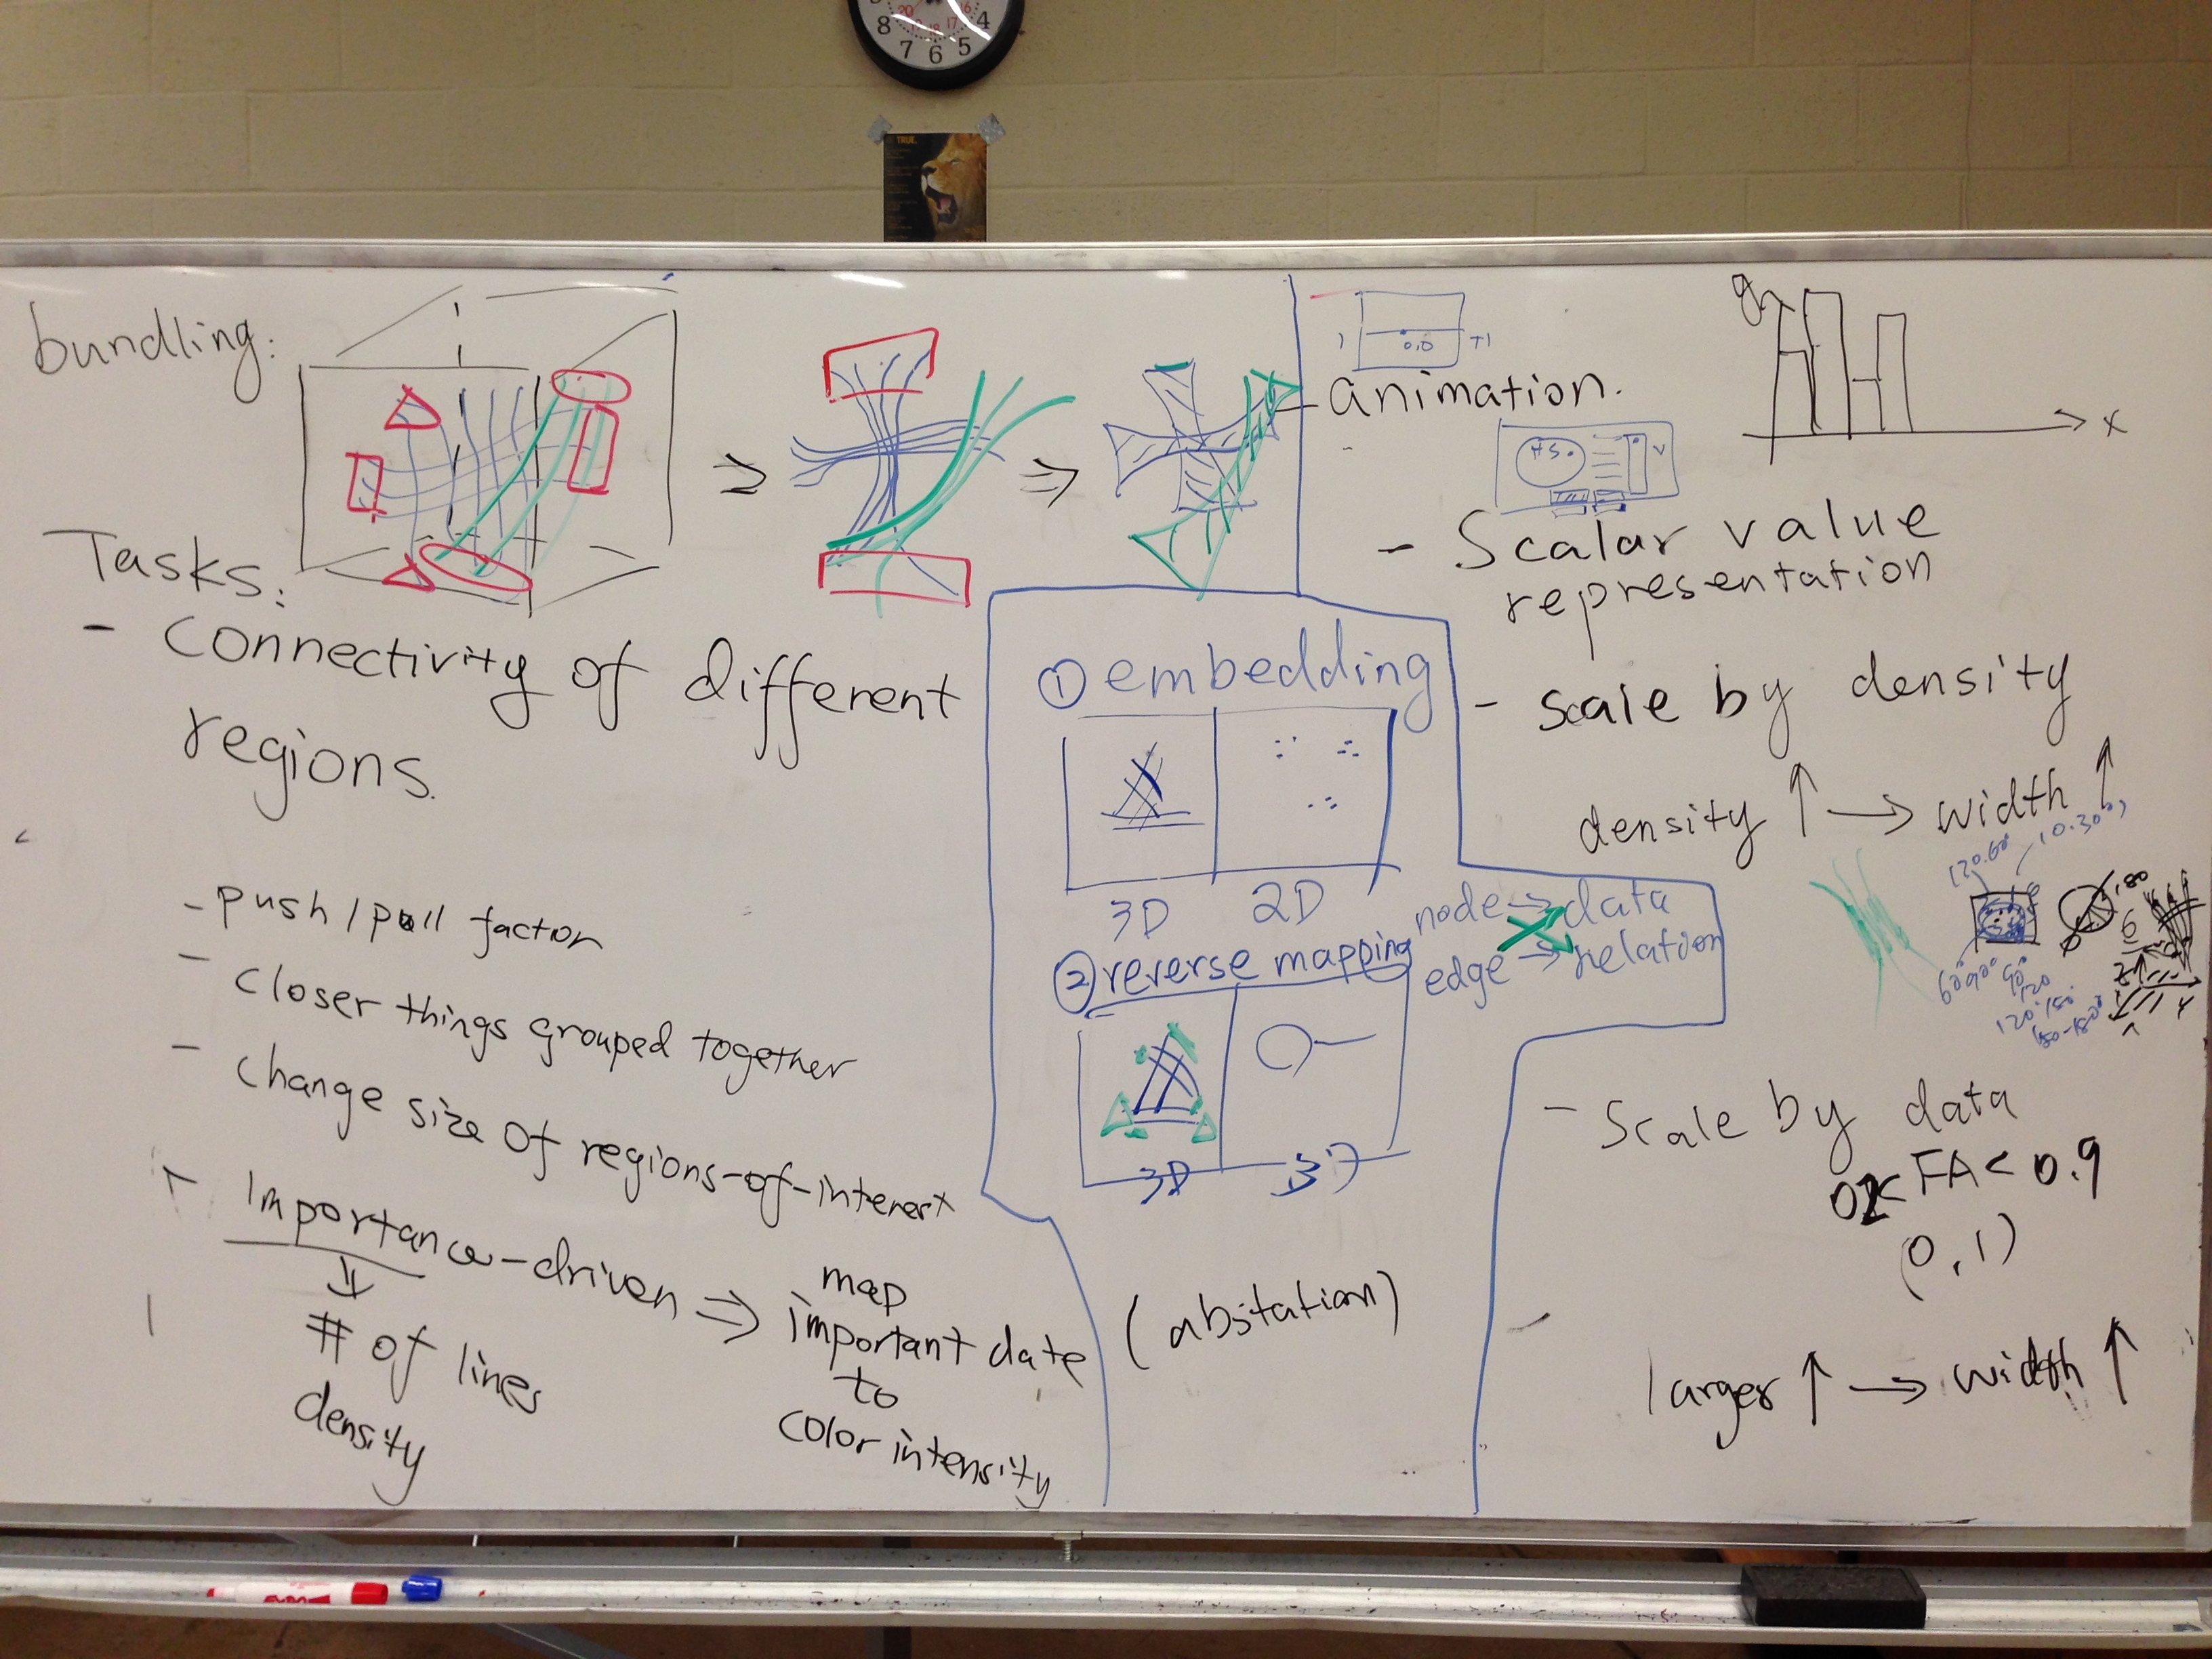 8
7
6
5
4
TRUE.
bundling:
Tasks:
- Connectivity of different
regions.
- push/pull factor
- closer things grouped together
- change size of regions-of-interest
- Importance-driven ⇒ map
important date
to
color intensity
⇓
# of lines
density
(abstation)
① embedding
3D 2D
node → data
edge → relation
② reverse mapping
3D 3D
0,0
- animation.
x
HS.
V
- Scalar value
representation
- scale by density
density ↑ → width ↑
- Scale by data
< FA < 0.9
(0,1)
larger ↑ → width ↑